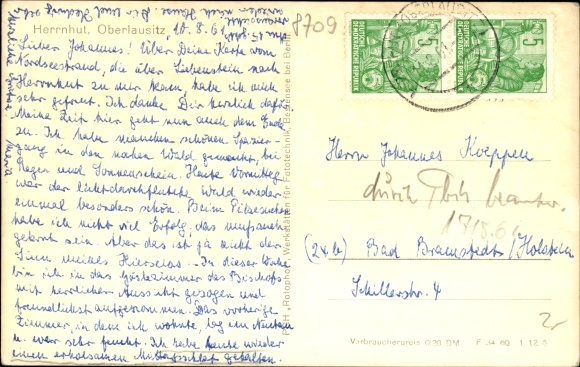 Herrnhut, Oberlausitz 10.8.61
Lieber Johannes! Über Deine Karte vom
Nordseestrand, die über Liebenstein nach
Herrnhut zu mir kam, habe ich mich
sehr gefreut. Ich danke Dir herzlich dafür.
Meine Zeit hier geht nun auch dem Ende
zu. Ich habe manchen schönen Spazier-
gang in den nahen Wald gemacht, bei
Regen und Sonnenschein. Heute Vormittag
war der Wald wieder
einmal besonders schön. Beim Pilzesuchen
habe ich nicht viel Erfolg, das will
gelernt sein. Aber das ist ja nicht der
Sinn meines Hierseins. In dieser Woche
bin ich in das Gästezimmer des Bischofs
mit herrlicher Aussicht gezogen und
freundlichst aufgenommen. Das vorherige
Zimmer, in dem ich wohnte, lag
u. war sehr feucht. Ich habe heute wieder
einen erholsamen Mittagsschlaf gehalten.
8709
DEUTSCHE DEMOKRATISCHE REPUBLIK
5
DEUTSCHE DEMOKRATISCHE REPUBLIK
5
Herrn Johannes Koeppen
durch
17/8.61
(24b) Bad Bramstedt/Holstein
Schillerstr. 4
Rotophot, Werkstätten für Fototechnik, Bestensee bei Berlin
Verbraucherpreis 0,20 DM